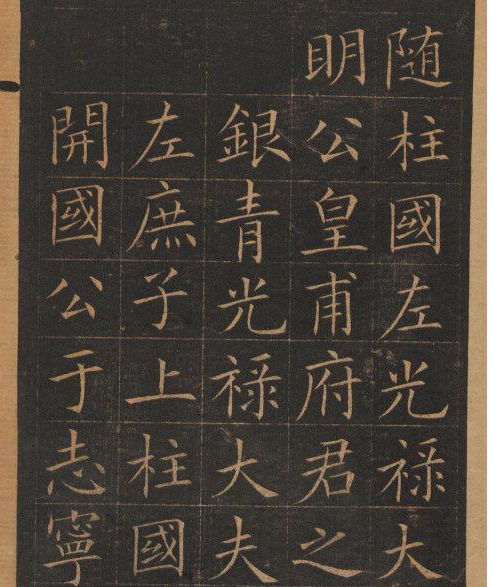 随柱國左光禄大
明公皇甫府君之
銀青光禄大夫
左庶子上柱國
開國公于志寧